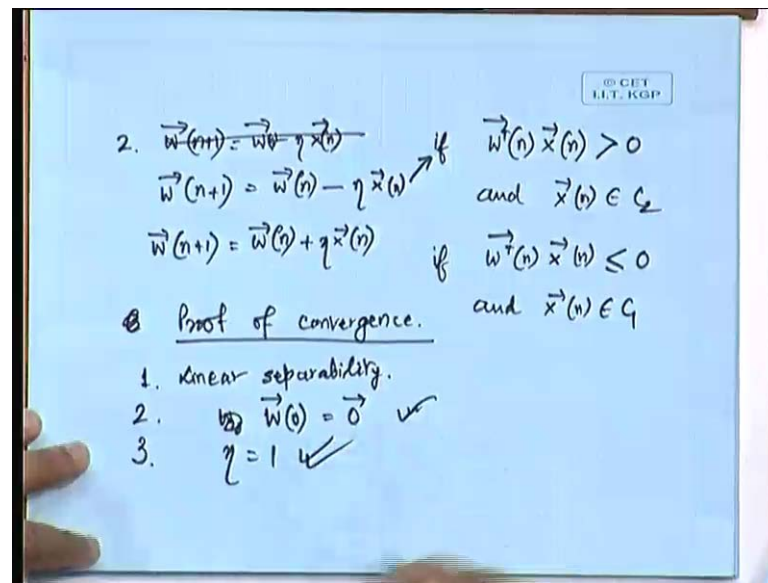 © CET
I.I.T. KGP
2. w⃗(n+1) = w⃗( ) - η x⃗(n)
w⃗(n+1) = w⃗(n) - η x⃗(n) if w⃗ᵀ(n) x⃗(n) > 0
and x⃗(n) ∈ C₂
w⃗(n+1) = w⃗(n) + η x⃗(n) if w⃗ᵀ(n) x⃗(n) ≤ 0
and x⃗(n) ∈ C₁
Proof of convergence.
1. Linear separability.
2. w⃗(0) = 0⃗ ✓
3. η = 1 ✓